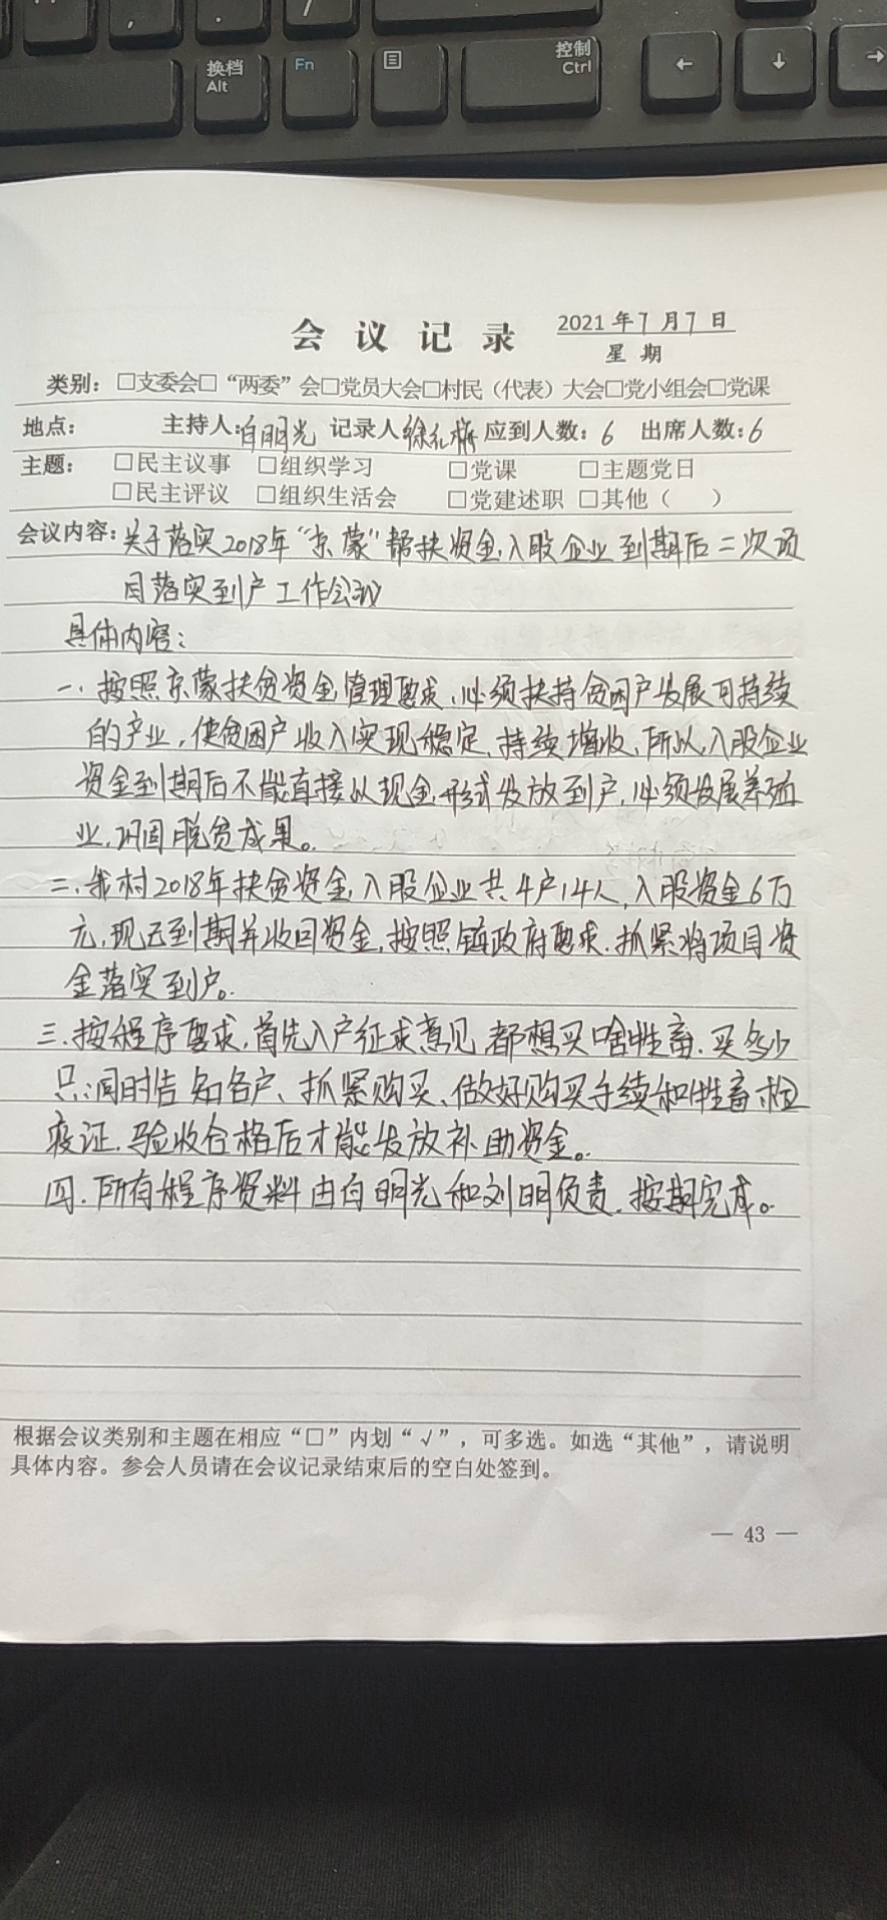 换档
Alt
Fn
控制
Ctrl
会议记录
2021年7月7日
星期
类别：□支委会□“两委”会□党员大会□村民（代表）大会□党小组会□党课
地点： 主持人:白明光 记录人徐 梅 应到人数：6 出席人数:6
主题： □民主议事 □组织学习 □党课 □主题党日
□民主评议 □组织生活会 □党建述职 □其他（ ）
会议内容：关于落实2018年“京蒙”帮扶资金入股企业到期后二次项
目落实到户工作会议
具体内容：
一、按照京蒙扶贫资金管理要求，必须扶持贫困户发展可持续
的产业，使贫困户收入实现稳定、持续增收，所以，入股企业
资金到期后不能直接以现金形式发放到户，必须发展养殖
业，巩固脱贫成果。
二、我村2018年扶贫资金入股企业共4户14人，入股资金6万
元，现已到期并收回资金，按照镇政府要求，抓紧将项目资
金落实到户。
三、按程序要求，首先入户征求意见都想买啥牲畜，买多少
只，同时告知各户、抓紧购买、做好购买手续和牲畜检
疫证，验收合格后才能发放补助资金。
四、所有程序资料由白明光和刘明负责，按期完成。
根据会议类别和主题在相应“□”内划“√”，可多选。如选“其他”，请说明
具体内容。参会人员请在会议记录结束后的空白处签到。
— 43 —